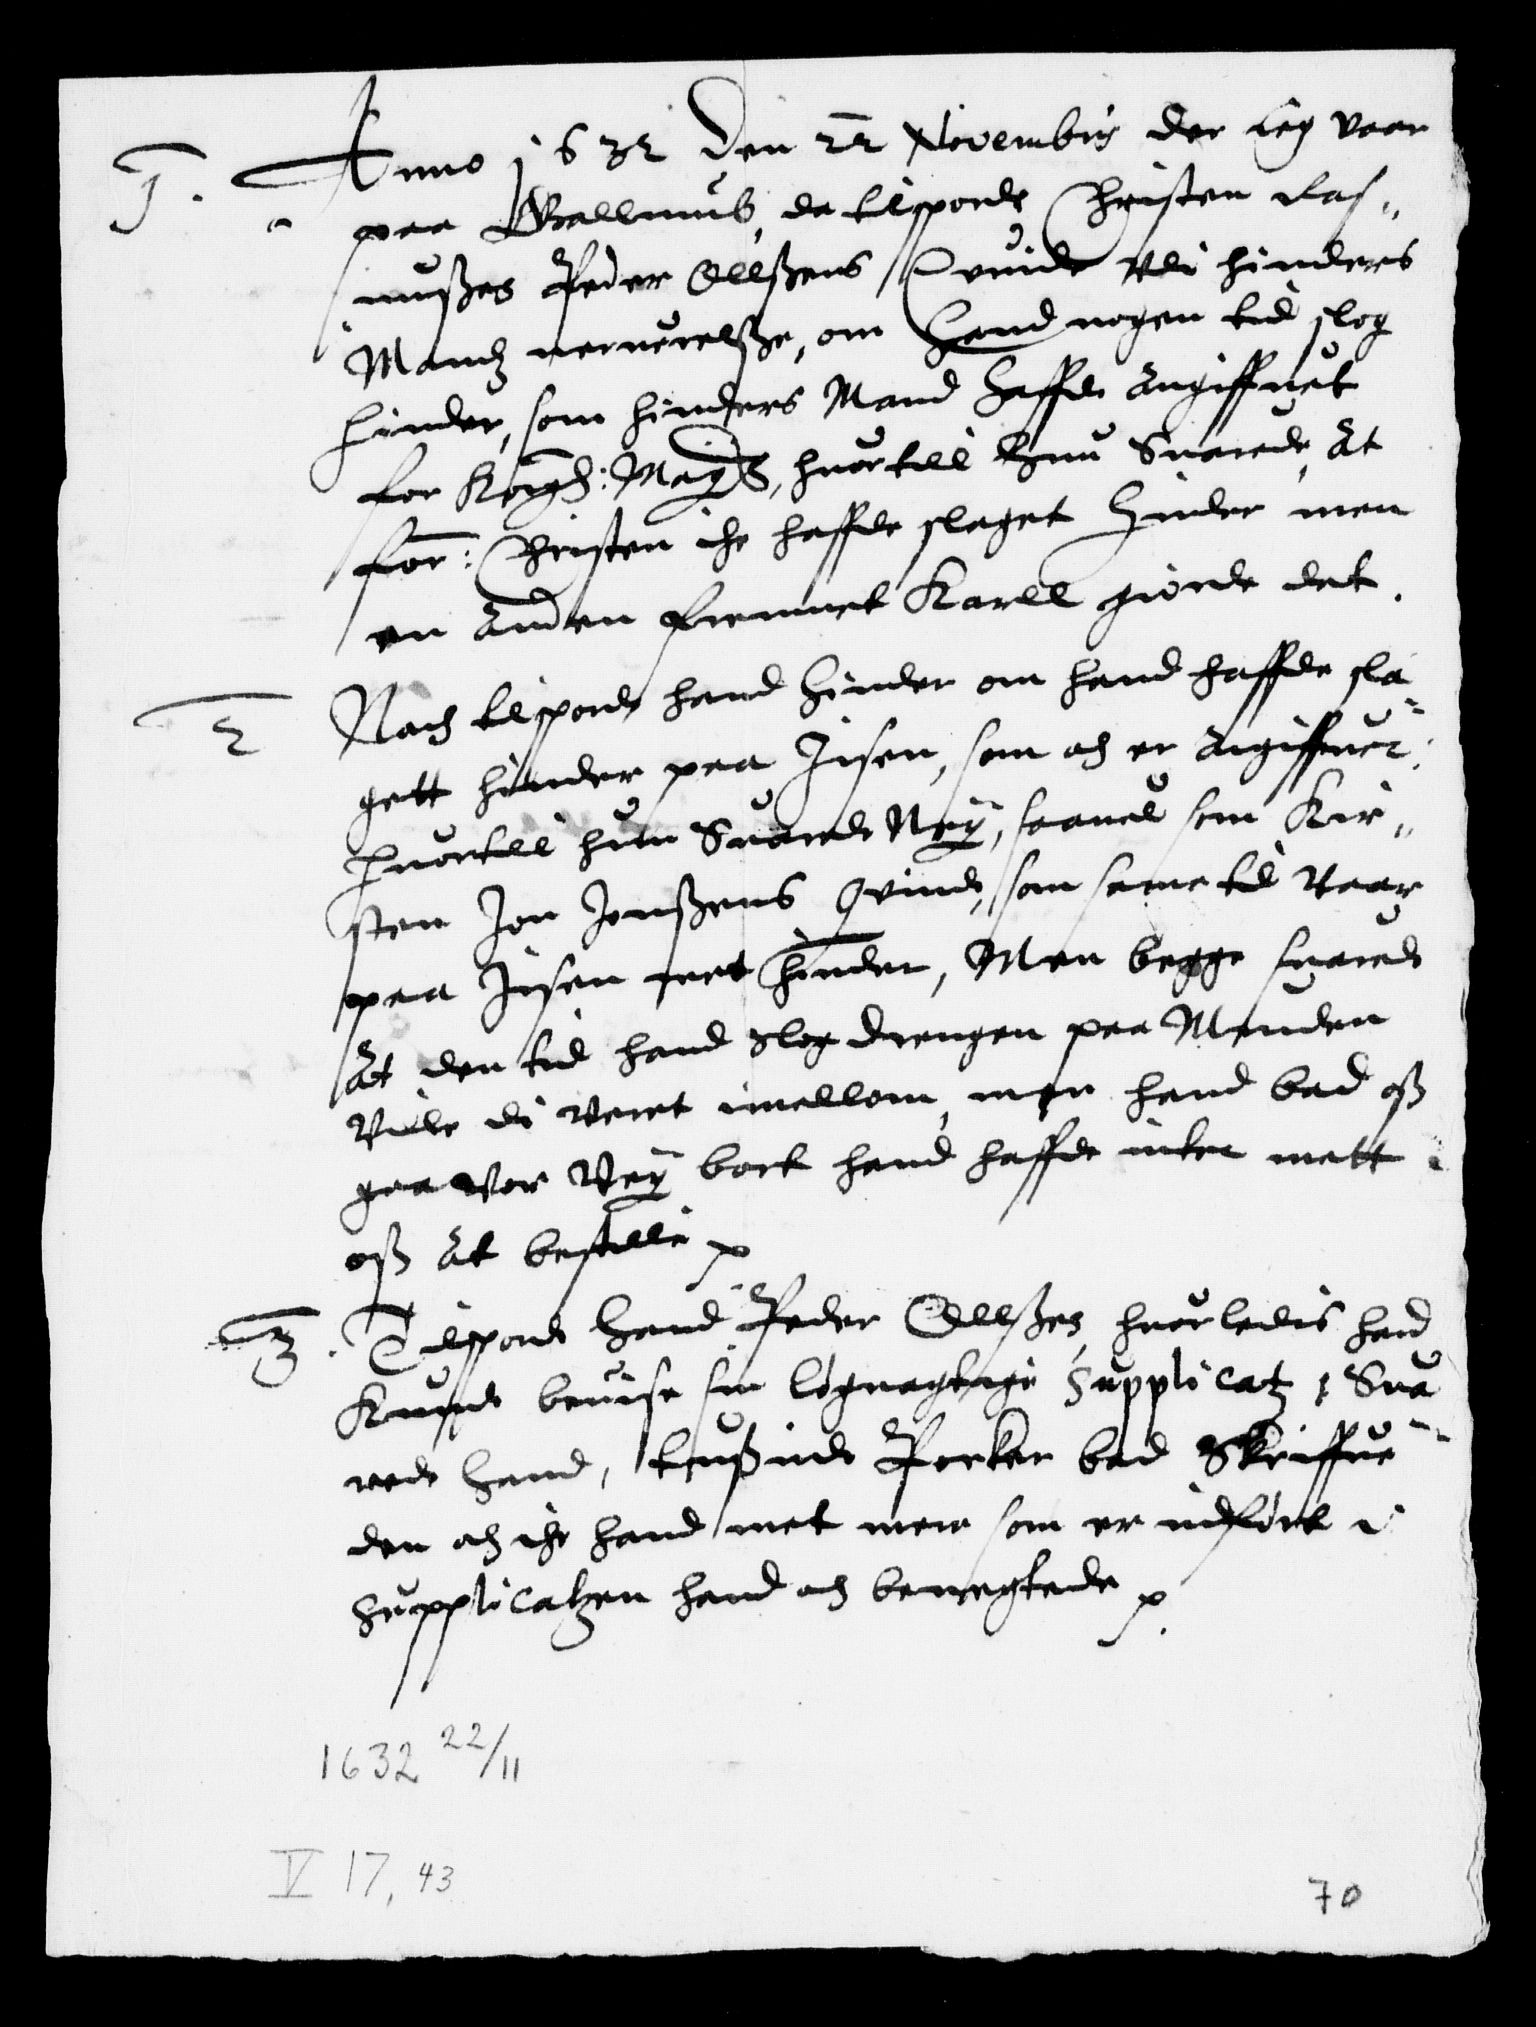 1. Anno 1632 den 22 Novembris der ieg vaar
paa Wallnub, da tilsporde Christen Ras¬
musßes Peder Ollßens Qvinde vdi hinders
Mandz neruerelße, om hand nogen tid slog
hinder, som hinders Mand haffde angiffuet
for Kong: Maytz, huortill hun Suarede, At
for: Christen iche haffde slaget hinder men
en Anden fremmet Karll giorde det.
2 Noch tilspords hand hinder om hand haffde sla¬
gett hinder paa Jisen, som och er Angiffuet.
Huortill hun Suarede Ney, saauel som Kir¬
sten Jon Jenßens Qvinde, som same tid Vaar
paa Jisen met hinder, Men begge suarede
At den tid hand slog drengen paa Munden
Vilde di veret imellom, men hand bad oß
gaa vor Vey bort hand haffde intet mett
oß At bestille
3. Tilspords hand Peder Ollßes, huorledis hand
Kunde beuise sin løgnagtige Supplicatz, Sua¬
rede hand, tusinde Perker bad Skriffue
den och iche hand met mere som er indført i
Supplicatzen hand och benegtede
1632 22/11
V 17, 43
70